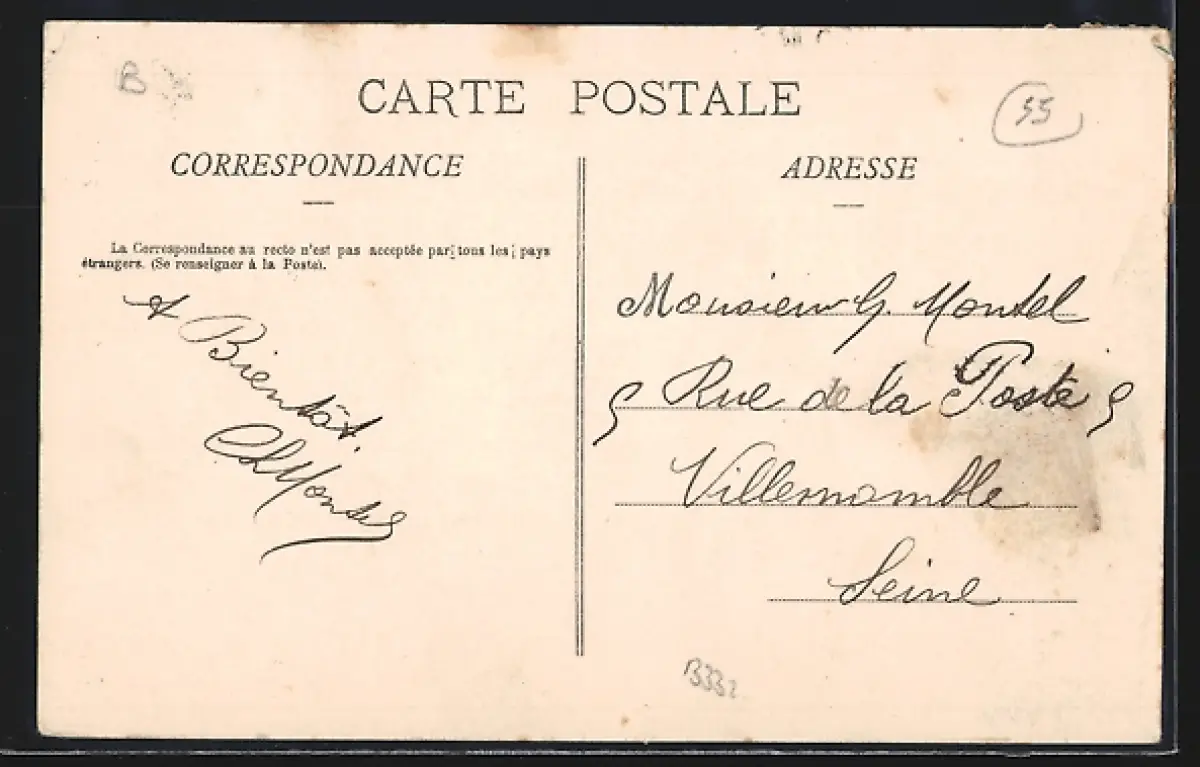 B
CARTE POSTALE
55
CORRESPONDANCE
La Correspondance au recto n'est pas acceptée par tous les pays
étrangers. (Se renseigner à la Poste).
A Bientôt.
ADRESSE
Monsieur G. Montel
5 Rue de la Poste 5
Villemomble
Seine